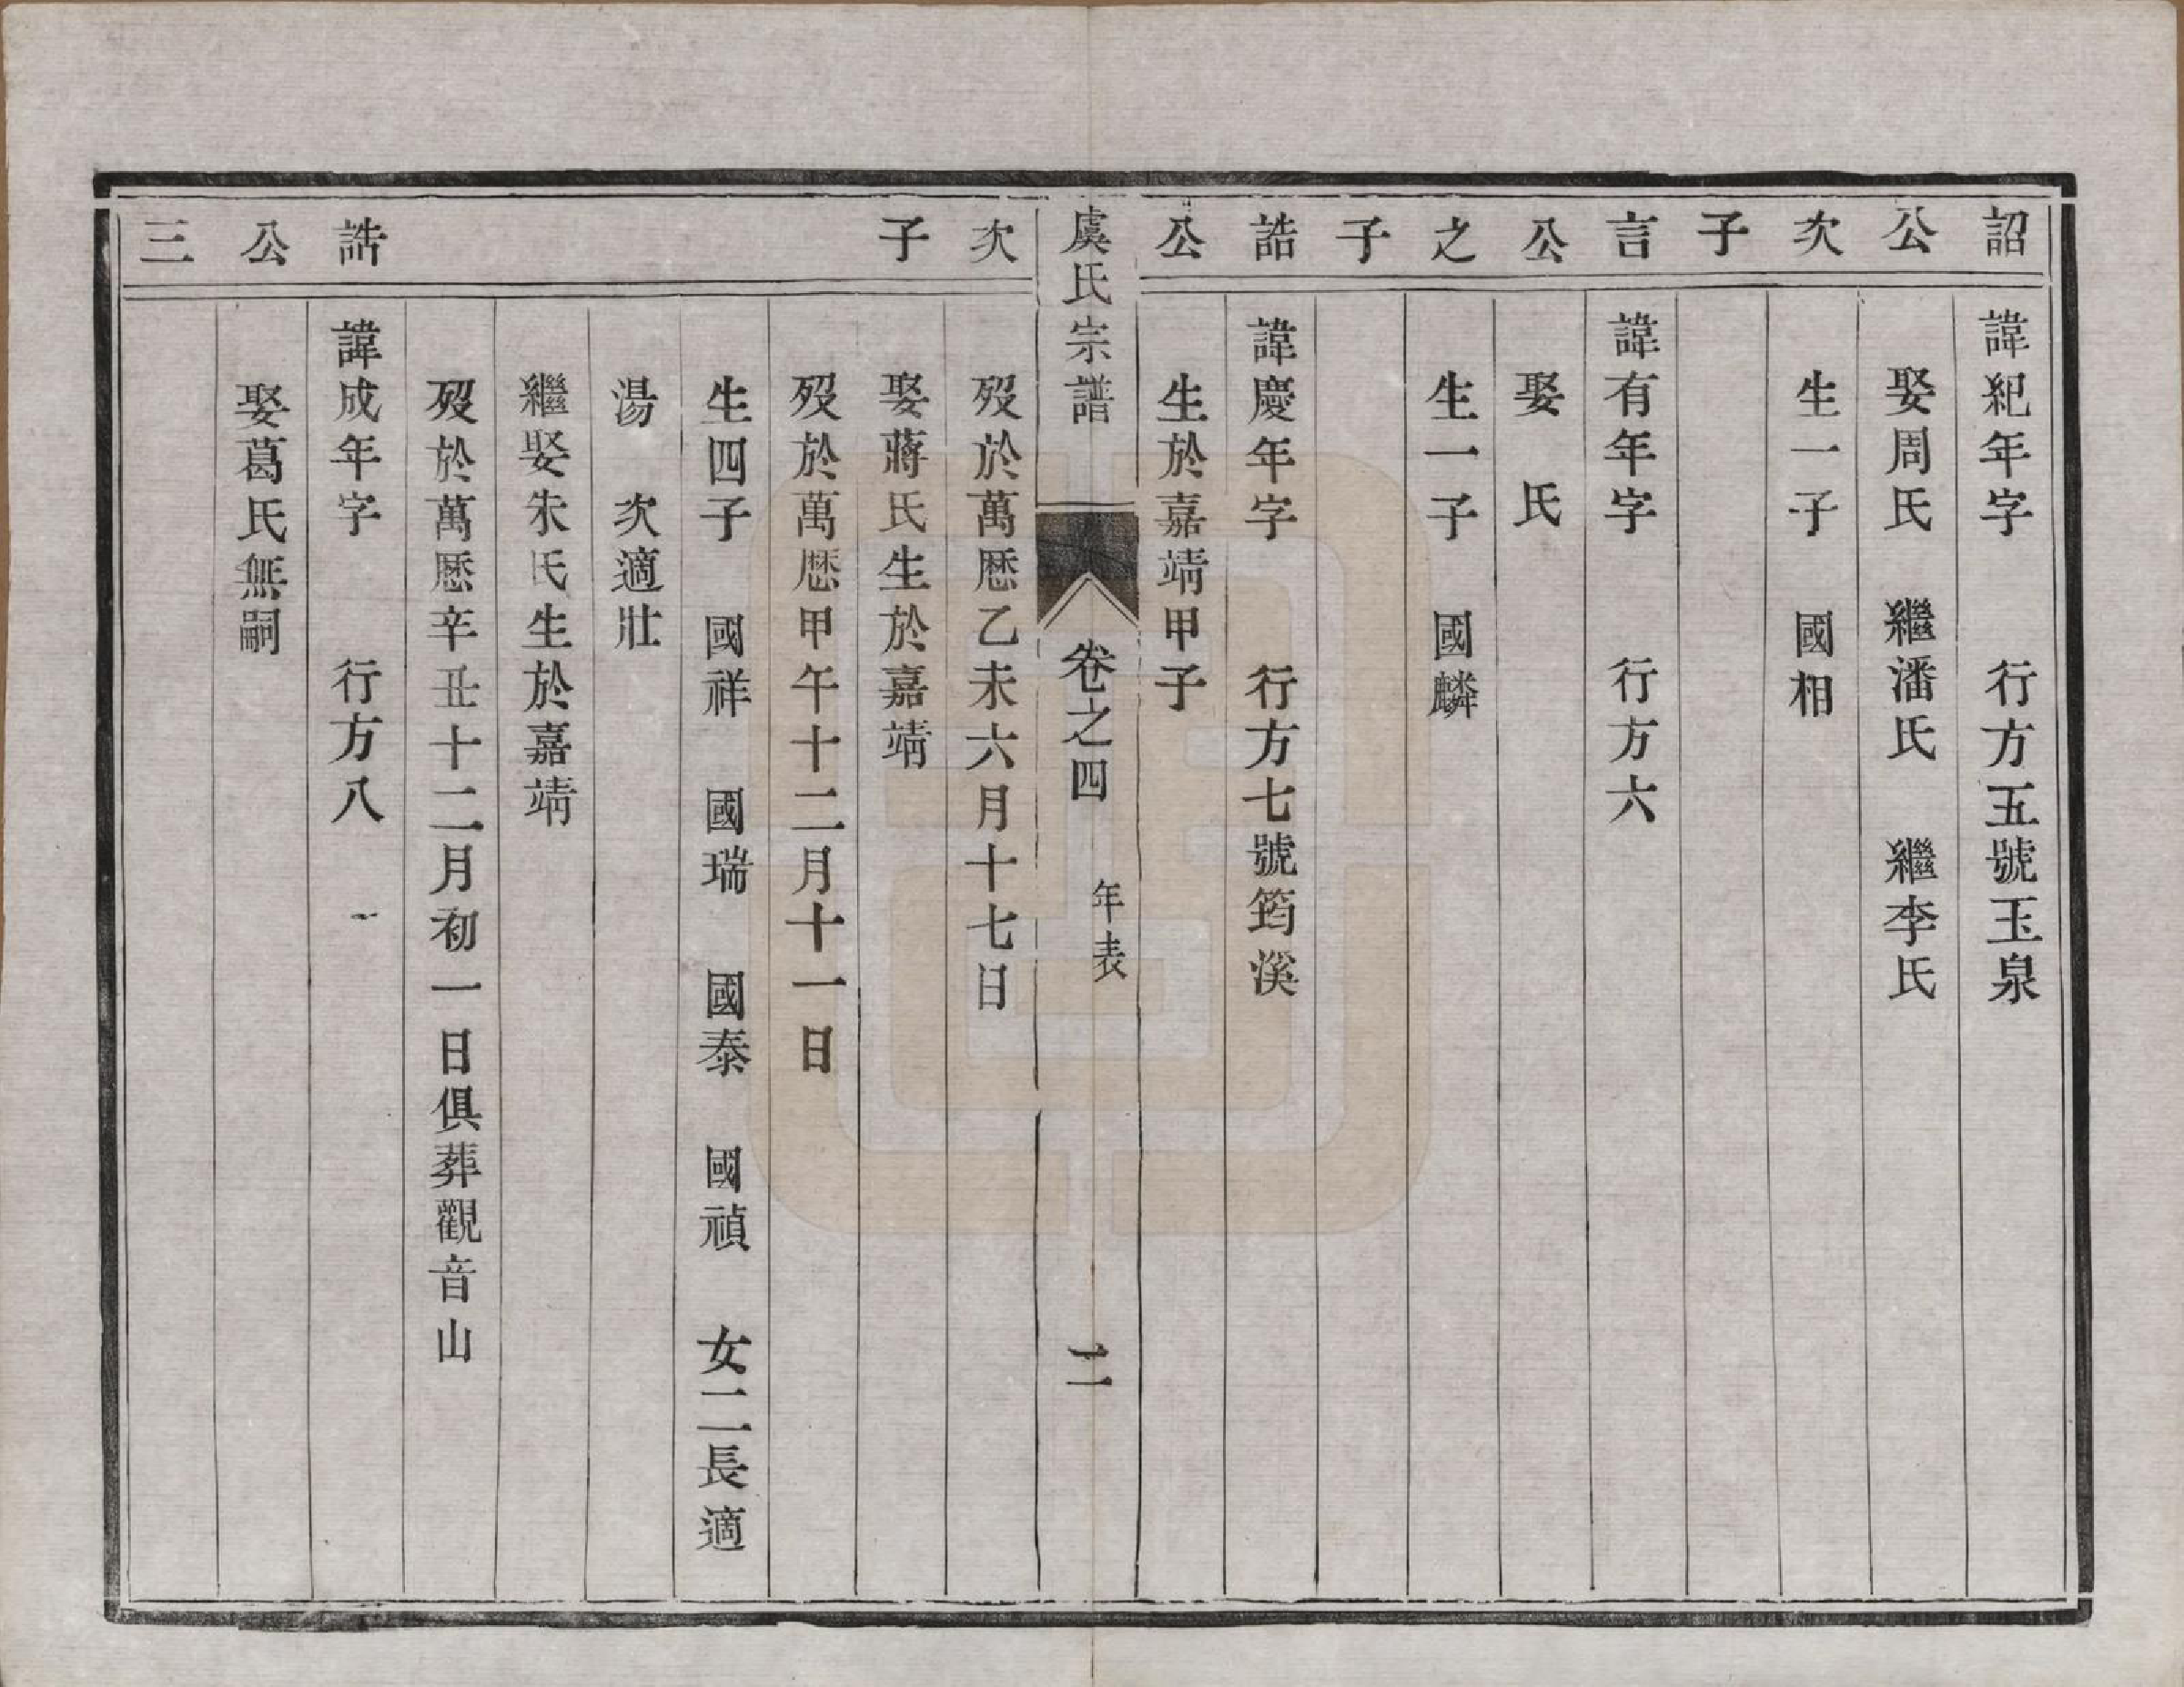 詔公次子言公之子誥公
諱紀年字 行方五號玉泉
娶周氏 繼潘氏 繼李氏
生一子 國相
諱有年字 行方六
娶 氏
生一子 國麟
諱慶年字 行方七號筠溪
生於嘉靖甲子
虞氏宗譜 卷之四 年表 二
次子 誥公三
歿於萬歷乙未六月十七日
娶蔣氏生於嘉靖
歿於萬歷甲午十二月十一日
生四子 國祥 國瑞 國泰 國禎 女二長適
湯 次適壯
繼娶朱氏生於嘉靖
歿於萬歷辛丑十二月初一日俱葬觀音山
諱成年字 行方八
娶葛氏無嗣